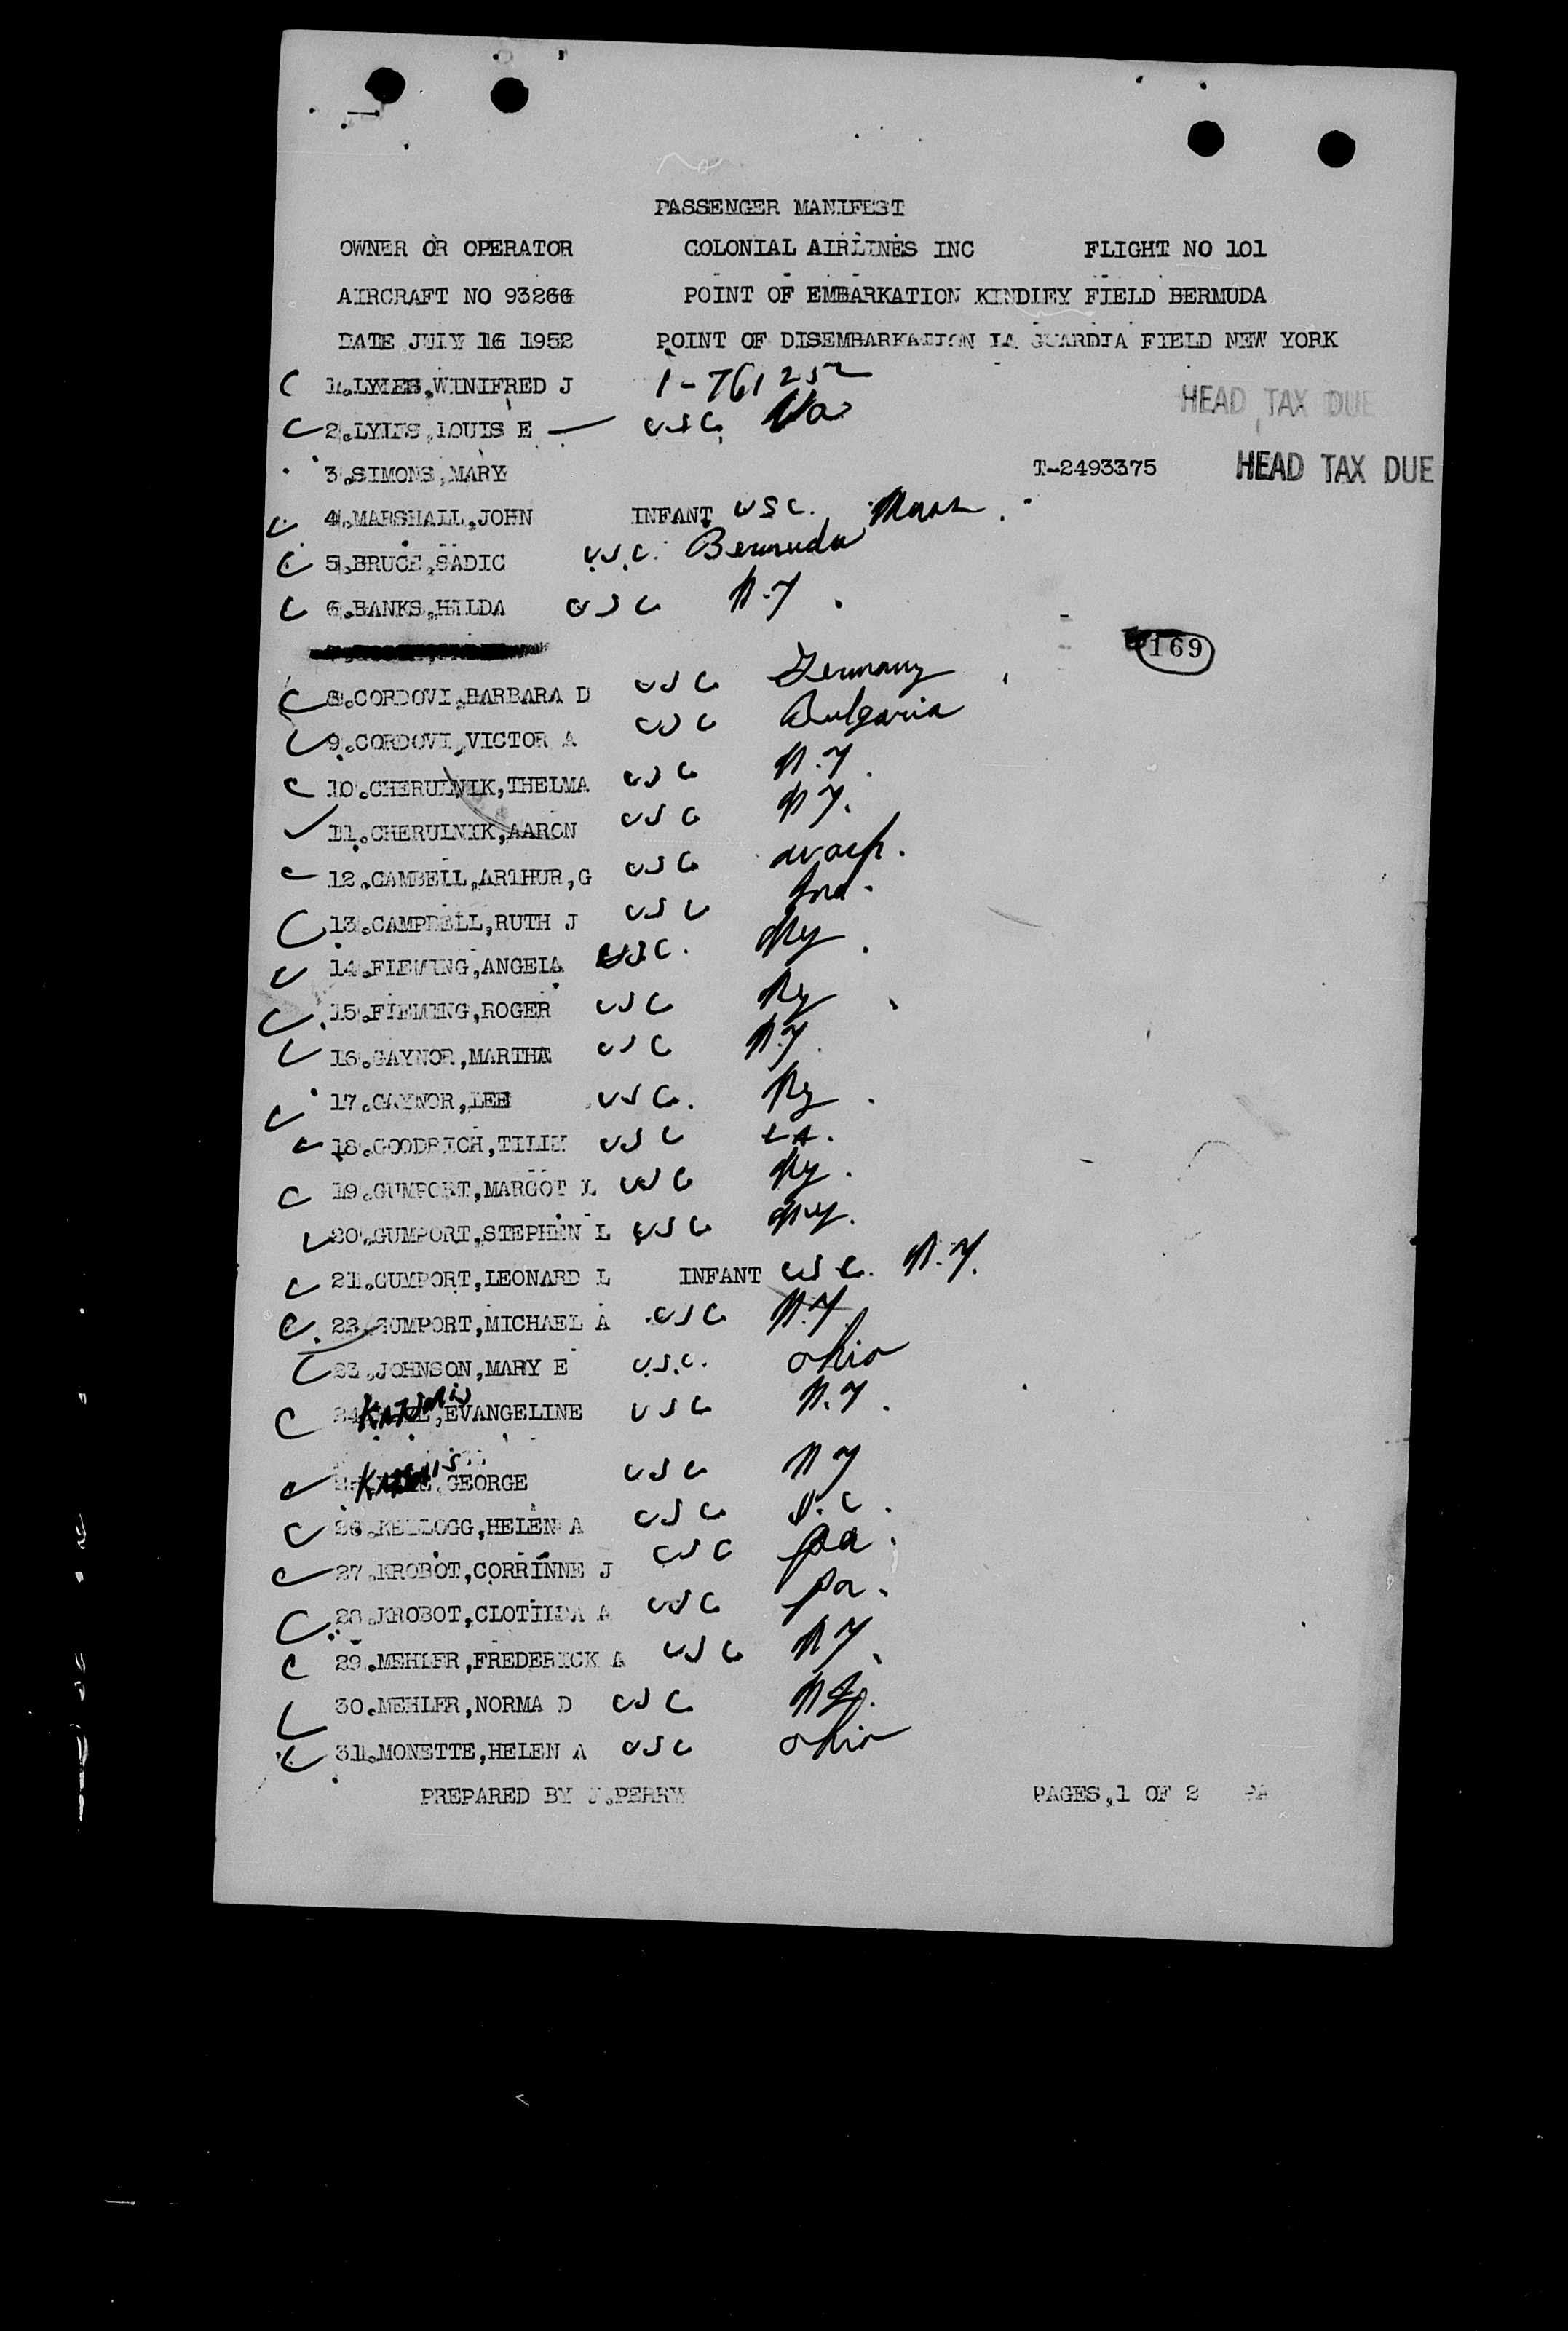 PASSENGER MANIFEST
OWNER OR OPERATOR COLONIAL AIRLINES INC FLIGHT NO 101
AIRCRAFT NO 93266 POINT OF EMBARKATION KINDLEY FIELD BERMUDA
DATE JULY 16 1952 POINT OF DISEMBARKATION LA GUARDIA FIELD NEW YORK
1.LYLES,WINIFRED J 1-761252 HEAD TAX DUE
2.LYLES,LOUIS E — USC Va
3.SIMONS,MARY T-2493375 HEAD TAX DUE
4.MARSHALL,JOHN INFANT USC. Mass.
5.BRUCE,SADIC U.S.C. Bermuda
6.BANKS,HILDA USC N.Y.
169
8.CORDOVI,BARBARA D USC Germany
9.CORDOVI,VICTOR A USC Bulgaria
10.CHERULNIK,THELMA USC N.Y.
11.CHERULNIK,AARON USC NY.
12.CAMBELL,ARTHUR,G USC Wash.
13.CAMPBELL,RUTH J USC Ind.
14.FLEMING,ANGELA USC. NY.
15.FLEMING,ROGER USC NY
16.GAYNOR,MARTHA USC N.Y.
17.GAYNOR,LEE USC. NY.
18.GOODRICH, USC LA.
19.GUMPORT,MARGOT L USC NY.
20.GUMPORT,STEPHEN L USC NY.
21.GUMPORT,LEONARD L INFANT USC. N.Y.
22.GUMPORT,MICHAEL A USC N.Y.
23.JOHNSON,MARY E U.S.C. Ohio
24. ,EVANGELINE USC N.Y.
,GEORGE USC NY
26.KELLOGG,HELEN A USC D.C.
27.KROBOT,CORRINNE J USC Pa.
28.KROBOT,CLOTILDA A USC Pa.
29.MEHLER,FREDERICK A USC NY.
30.MEHLER,NORMA D USC
31.MONETTE,HELEN A USC Ohio
PREPARED BY J.PERRY PAGES,1 OF 2